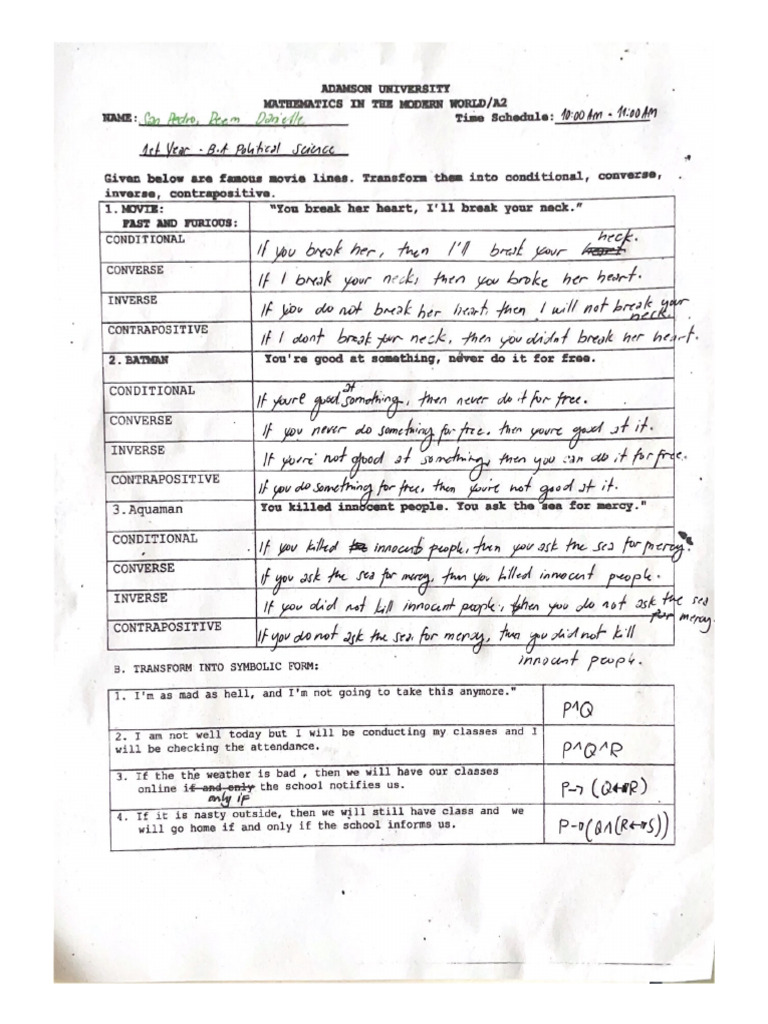 ADAMSON UNIVERSITY
MATHEMATICS IN THE MODERN WORLD/A2
NAME: San Pedro, Reem Danielle Time Schedule: 10:00 AM - 11:00 AM
1st Year - B.A Political Science
Given below are famous movie lines. Transform them into conditional, converse,
inverse, contrapositive.
1. MOVIE: "You break her heart, I'll break your neck."
FAST AND FURIOUS:
CONDITIONAL If you break her, then I'll break your heart neck.
CONVERSE If I break your neck, then you broke her heart.
INVERSE If you do not break her heart, then I will not break your
neck.
CONTRAPOSITIVE If I dont break your neck, then you didnt break her heart.
2. BATMAN You're good at something, never do it for free.
CONDITIONAL If youre good at something, then never do it for free.
CONVERSE If you never do something for free, then youre good at it.
INVERSE If you're not good at something, then you can do it for free.
CONTRAPOSITIVE If you do something for free, then you're not good at it.
3. Aquaman You killed innocent people. You ask the sea for mercy."
CONDITIONAL If you killed innocent people, then you ask the sea for mercy.
CONVERSE If you ask the sea for mercy, then you killed innocent people.
INVERSE If you did not kill innocent people, then you do not ask the sea
for mercy.
CONTRAPOSITIVE If you do not ask the sea for mercy, then you did not kill
innocent people.
B. TRANSFORM INTO SYMBOLIC FORM:
1. I'm as mad as hell, and I'm not going to take this anymore." P^Q
2. I am not well today but I will be conducting my classes and I
will be checking the attendance. P^Q^R
3. If the the weather is bad , then we will have our classes
online if and only the school notifies us. P→(Q↔R)
only if
4. If it is nasty outside, then we will still have class and we
will go home if and only if the school informs us. P→(Q∧(R↔S))